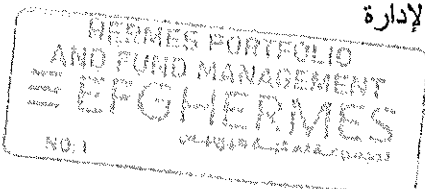 لإدارة
HERMES PORTFOLIO
AND FUND MANAGEMENT
EFG HERMES
NO: 1